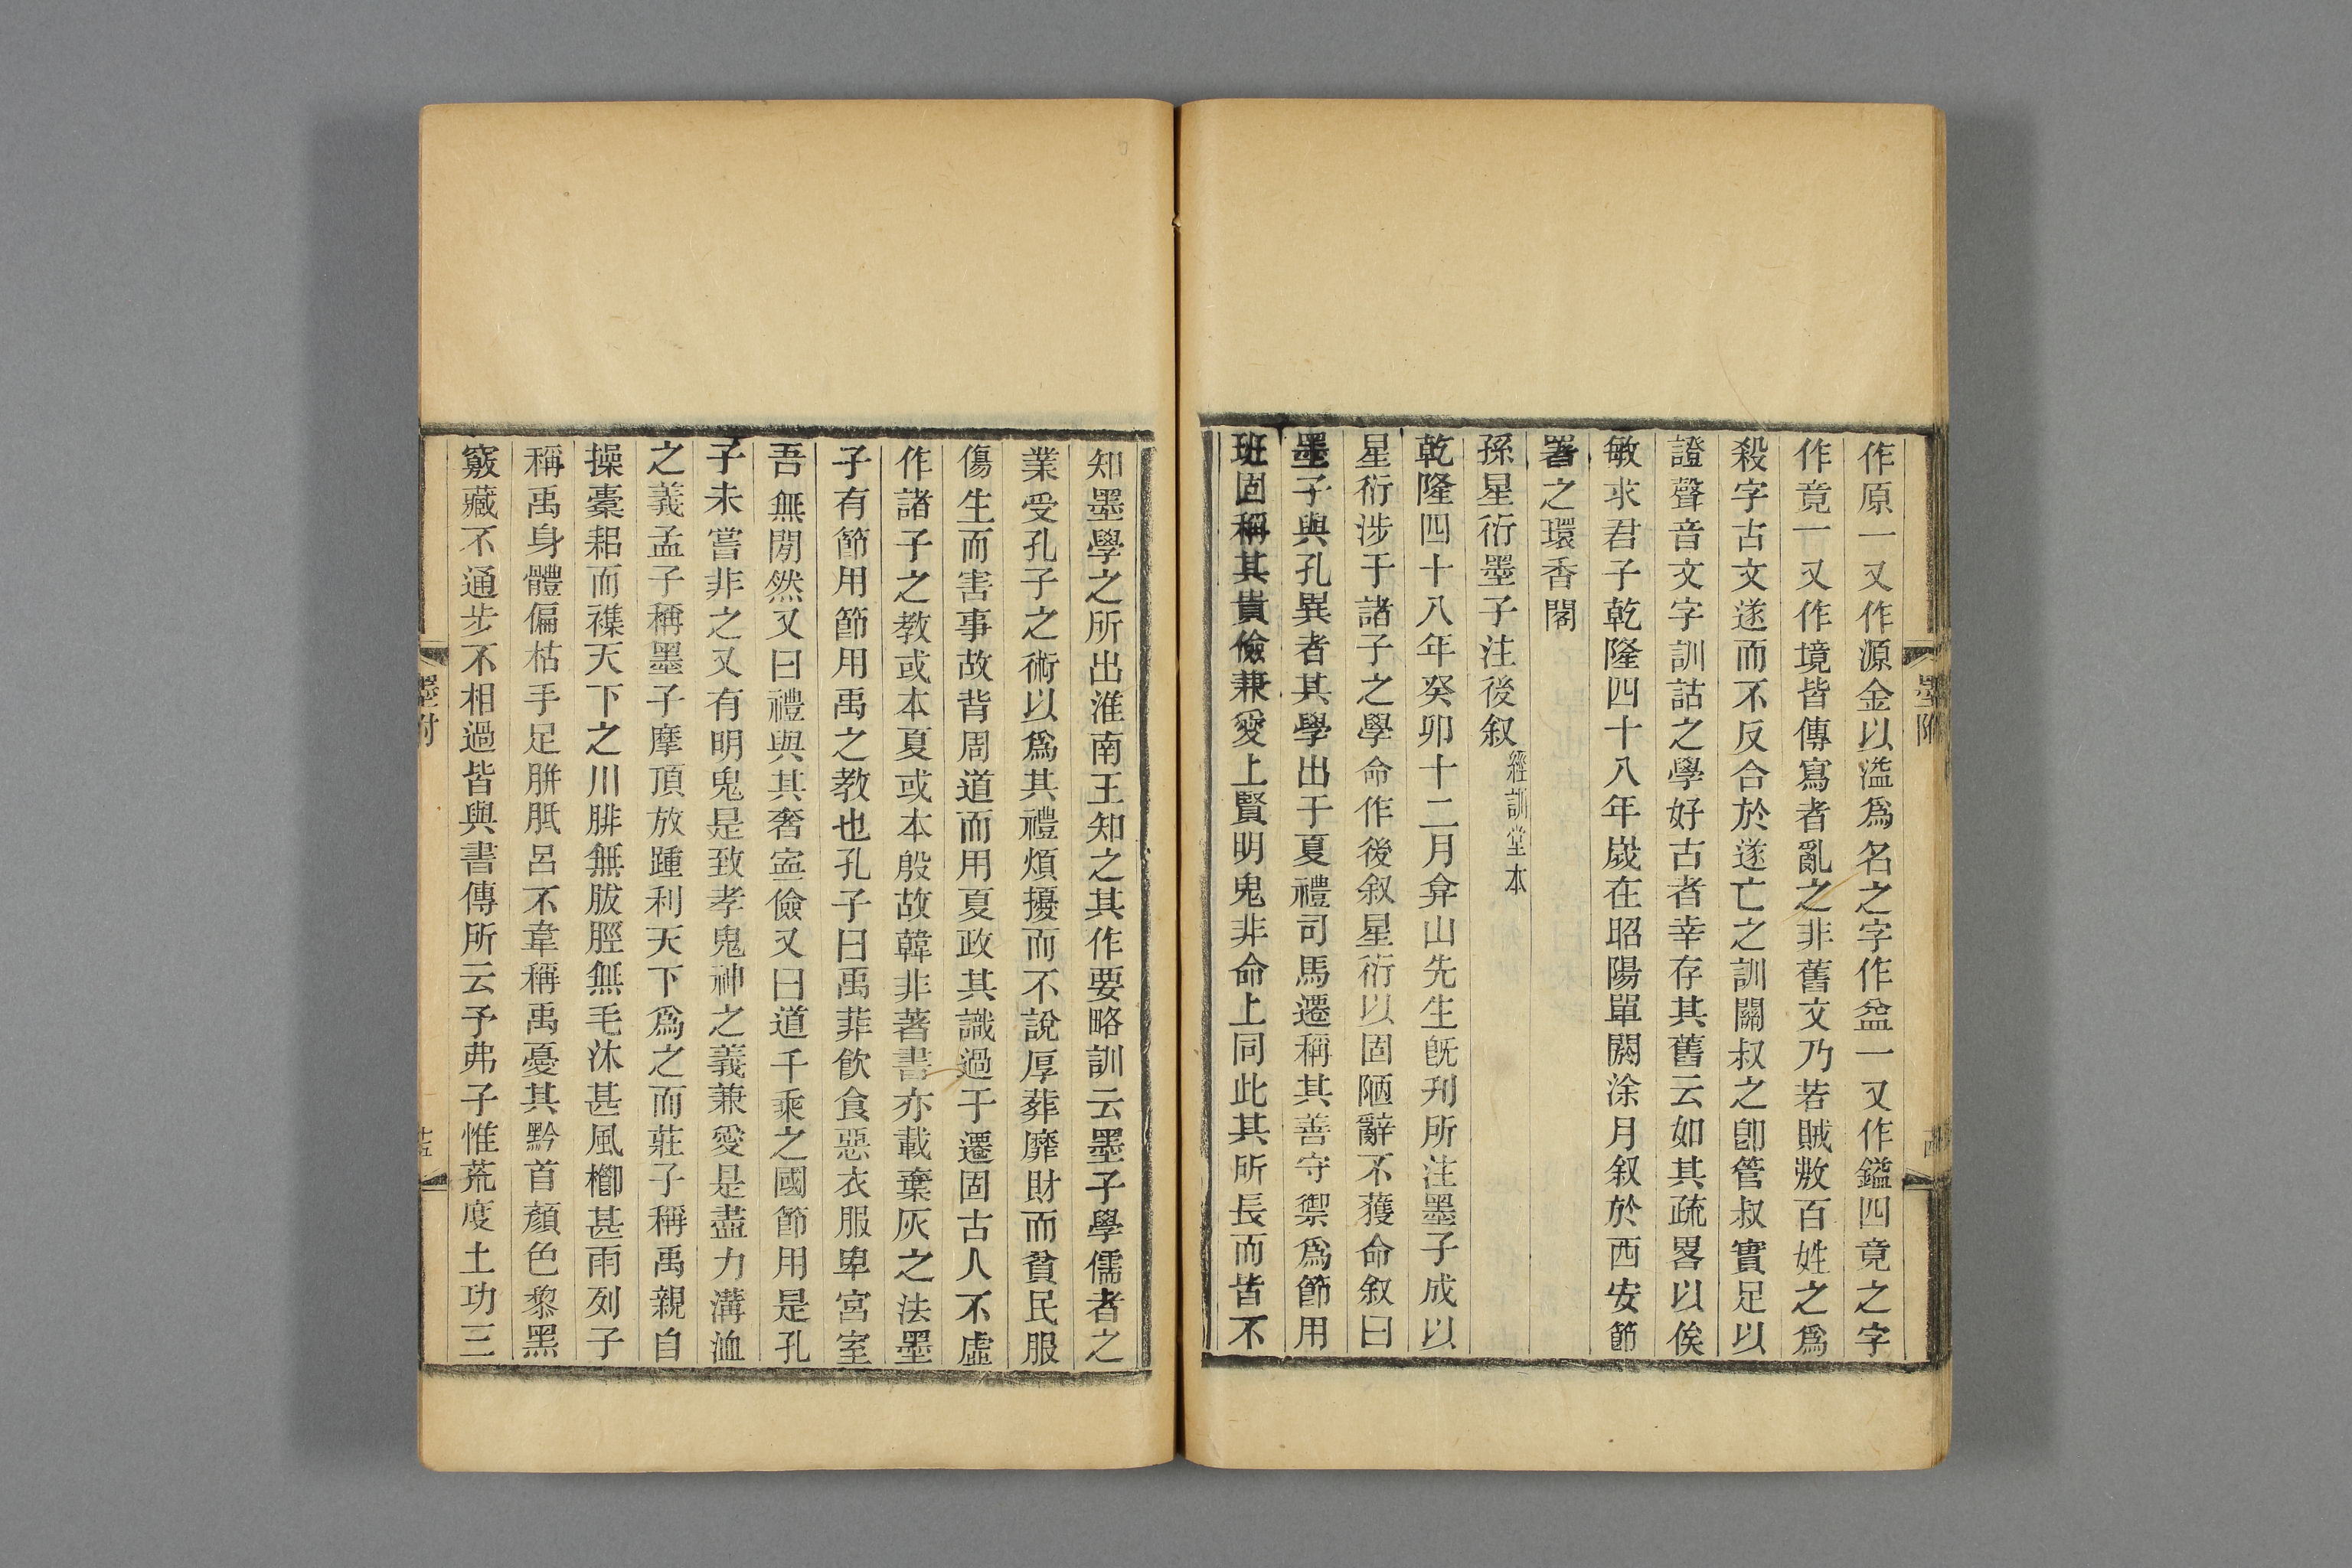 墨附
作原一又作源金以溢爲名之字作盆一又作鎰四竟之字
作竟一又作境皆傳寫者亂之非舊文乃若賊敷百姓之爲
殺字古文遂而不反合於遂亡之訓關叔之卽管叔實足以
證聲音文字訓詁之學好古者幸存其舊云如其疏畧以俟
敏求君子乾隆四十八年嵗在昭陽單閼涂月叙於西安節
署之環香閣
孫星衍墨子注後叙經訓堂本
乾隆四十八年癸卯十二月弇山先生旣刋所注墨子成以
星衍涉于諸子之學命作後叙星衍以固陋辭不獲命叙曰
墨子與孔異者其學出于夏禮司馬遷稱其善守禦爲節用
班固稱其貴儉兼愛上賢明鬼非命上同此其所長而皆不
知墨學之所出淮南王知之其作要略訓云墨子學儒者之
業受孔子之術以爲其禮煩擾而不說厚葬靡財而貧民服
傷生而害事故背周道而用夏政其識過于遷固古人不虛
作諸子之教或本夏或本殷故韓非著書亦載棄灰之法墨
子有節用節用禹之教也孔子曰禹菲飮食惡衣服卑宮室
吾無閒然又曰禮與其奢寍儉又曰道千乘之國節用是孔
子未嘗非之又有明鬼是致孝鬼神之義兼愛是盡力溝洫
之義孟子稱墨子摩頂放踵利天下爲之而莊子稱禹親自
操橐耜而襍天下之川腓無胈脛無毛沐甚風櫛甚雨列子
稱禹身體偏枯手足胼胝呂不韋稱禹憂其黔首顏色黎黑
竅藏不通步不相過皆與書傳所云予弗子惟荒度土功三
墨附